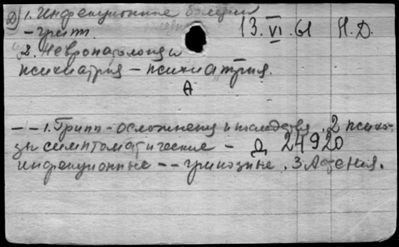 2) 1. Инфекционные болезни 13.VI.61 Н.Д.
– грипп.
2. Невропатология и
психиатрия – психиатрия.
А
– – 1. Грипп – осложнения и последствия. 2 психо-
зы симптоматические – Д 24920
инфекционные – – гриппозные. 3. Адения.